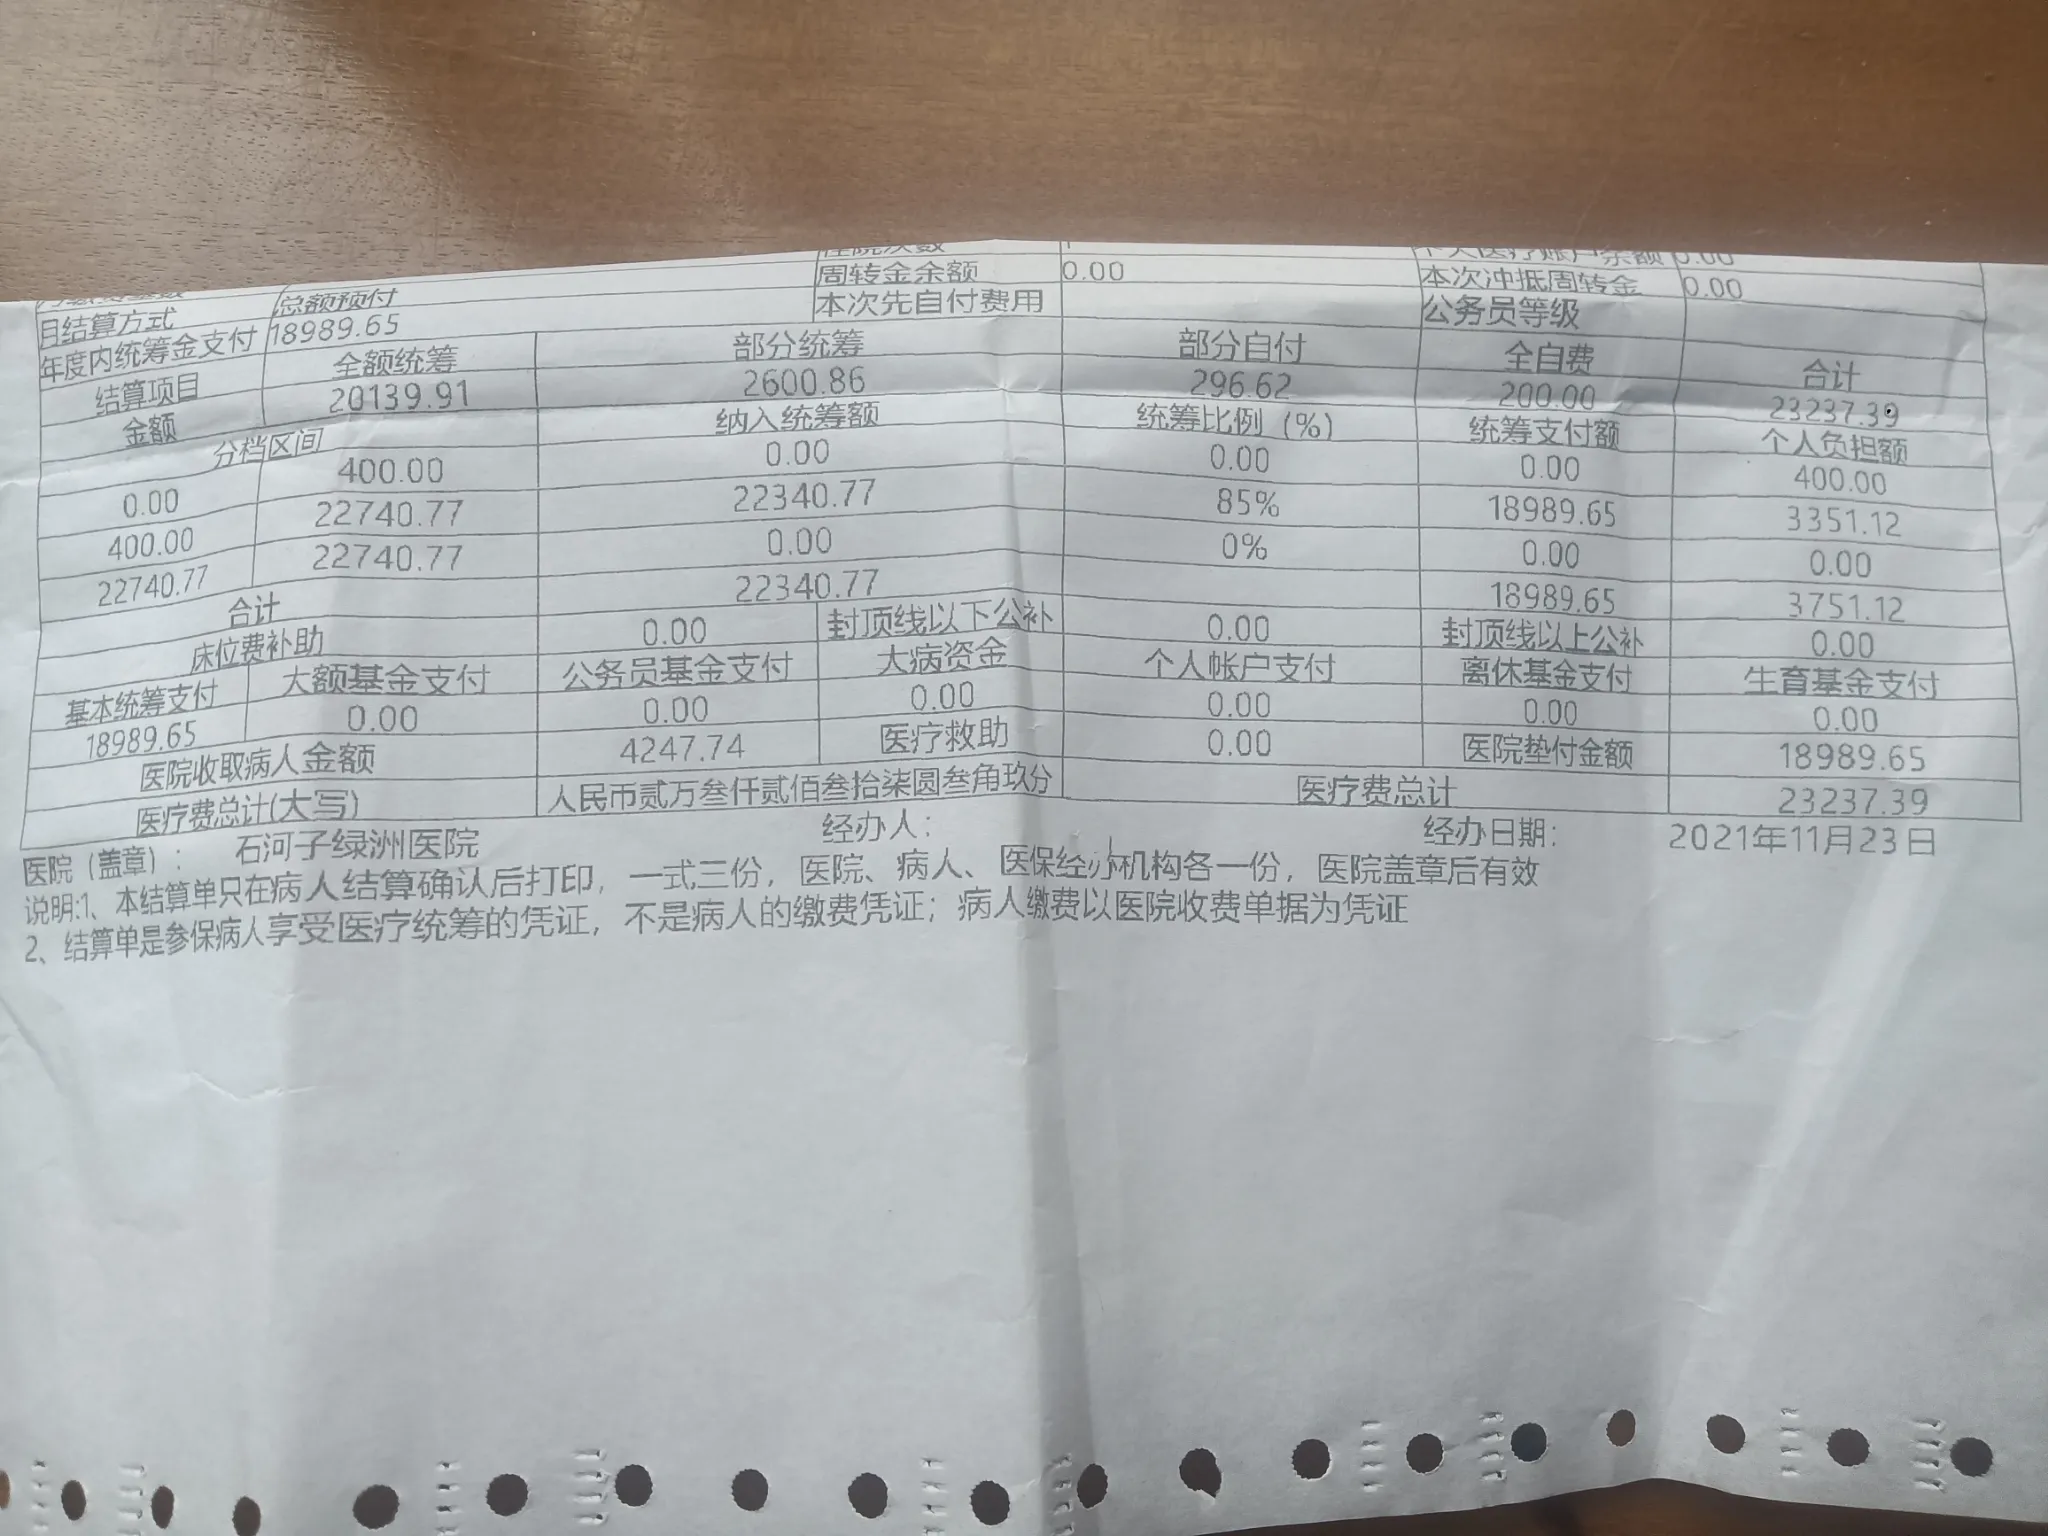 周转金余额 0.00 本次冲抵周转金 0.00
月结算方式 总额预付 本次先自付费用 公务员等级
年度内统筹金支付 18989.65
结算项目 全额统筹 部分统筹 部分自付 全自费 合计
金额 20139.91 2600.86 296.62 200.00 23237.39
分档区间 纳入统筹额 统筹比例（%） 统筹支付额 个人负担额
0.00 400.00 0.00 0.00 0.00 400.00
400.00 22740.77 22340.77 85% 18989.65 3351.12
22740.77 22740.77 0.00 0% 0.00 0.00
合计 22340.77 18989.65 3751.12
床位费补助 0.00 封顶线以下公补 0.00 封顶线以上公补 0.00
基本统筹支付 大额基金支付 公务员基金支付 大病资金 个人帐户支付 离休基金支付 生育基金支付
18989.65 0.00 0.00 0.00 0.00 0.00 0.00
医院收取病人金额 4247.74 医疗救助 0.00 医院垫付金额 18989.65
医疗费总计(大写) 人民币贰万叁仟贰佰叁拾柒圆叁角玖分 医疗费总计 23237.39
医院（盖章）： 石河子绿洲医院 经办人： 经办日期： 2021年11月23日
说明:1、本结算单只在病人结算确认后打印，一式三份，医院、病人、医保经办机构各一份，医院盖章后有效
2、结算单是参保病人享受医疗统筹的凭证，不是病人的缴费凭证；病人缴费以医院收费单据为凭证